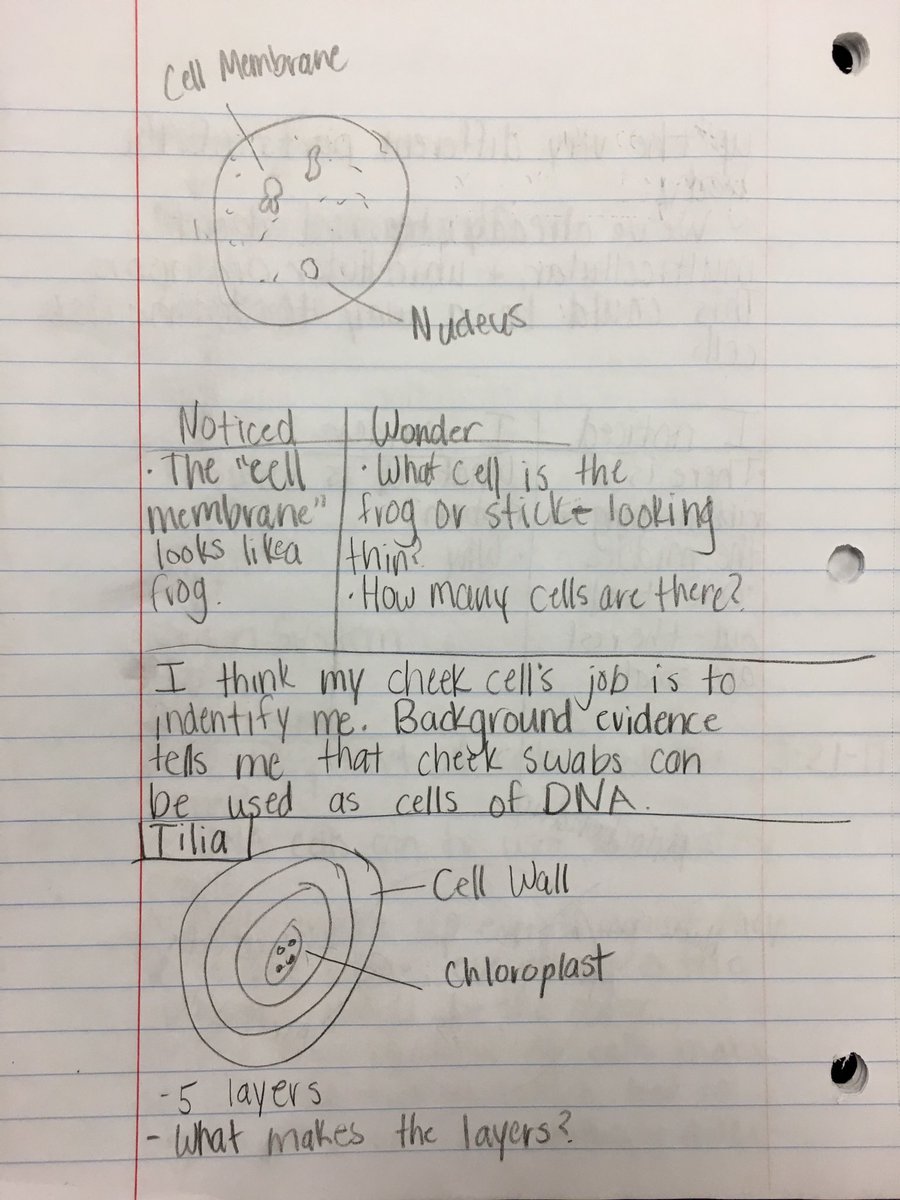 Cell Membrane
Nucleus
Noticed
· The "cell
membrane"
looks like a
frog.
Wonder
· What cell is the
frog or stick looking
thin?
· How many cells are there?
I think my cheek cell's job is to
indentify me. Background evidence
tells me that cheek swabs can
be used as cells of DNA.
Tilia
Cell Wall
Chloroplast
- 5 layers
- What makes the layers?